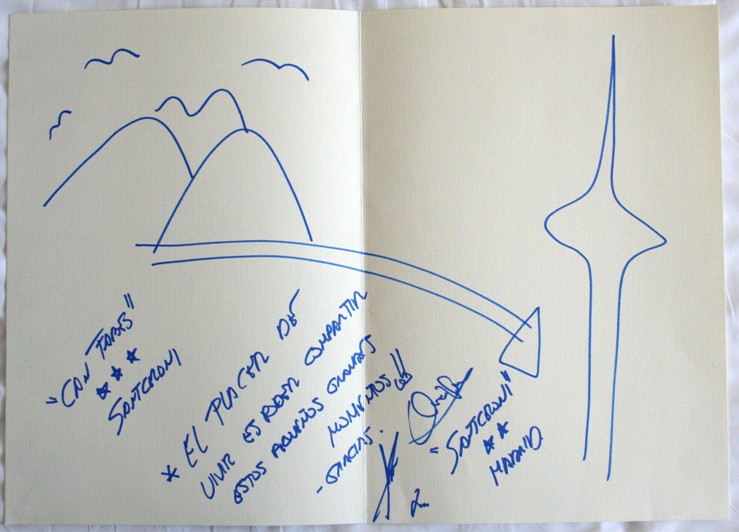 "CAN FABES"
★★★
SANTCELONI
* EL PLACER DE
VIVIR ES PODER COMPARTIR
ESTOS PEQUEÑOS GRANDES
MOMENTOS!!
- GRACIAS.
"SANTCELONI"
★★
MADRID